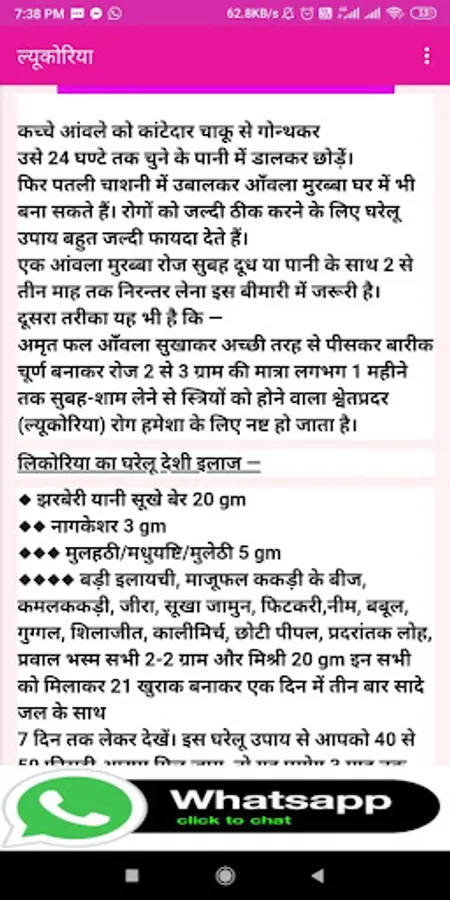 7:38 PM
62.8KB/s
33
ल्यूकोरिया
कच्चे आंवले को कांटेदार चाकू से गोन्थकर
उसे 24 घण्टे तक चुने के पानी में डालकर छोड़ें।
फिर पतली चाशनी में उबालकर आँवला मुरब्बा घर में भी
बना सकते हैं। रोगों को जल्दी ठीक करने के लिए घरेलू
उपाय बहुत जल्दी फायदा देते हैं।
एक आंवला मुरब्बा रोज सुबह दूध या पानी के साथ 2 से
तीन माह तक निरन्तर लेना इस बीमारी में जरूरी है।
दूसरा तरीका यह भी है कि —
अमृत फल आँवला सुखाकर अच्छी तरह से पीसकर बारीक
चूर्ण बनाकर रोज 2 से 3 ग्राम की मात्रा लगभग 1 महीने
तक सुबह-शाम लेने से स्त्रियों को होने वाला श्वेतप्रदर
(ल्यूकोरिया) रोग हमेशा के लिए नष्ट हो जाता है।
लिकोरिया का घरेलू देशी इलाज —
◆ झरबेरी यानी सूखे बेर 20 gm
◆◆ नागकेशर 3 gm
◆◆◆ मुलहठी/मधुयष्टि/मुलेठी 5 gm
◆◆◆◆ बड़ी इलायची, माजूफल ककड़ी के बीज,
कमलककड़ी, जीरा, सूखा जामुन, फिटकरी,नीम, बबूल,
गुग्गल, शिलाजीत, कालीमिर्च, छोटी पीपल, प्रदरांतक लोह,
प्रवाल भस्म सभी 2-2 ग्राम और मिश्री 20 gm इन सभी
को मिलाकर 21 खुराक बनाकर एक दिन में तीन बार सादे
जल के साथ
7 दिन तक लेकर देखें। इस घरेलू उपाय से आपको 40 से
Whatsapp
click to chat